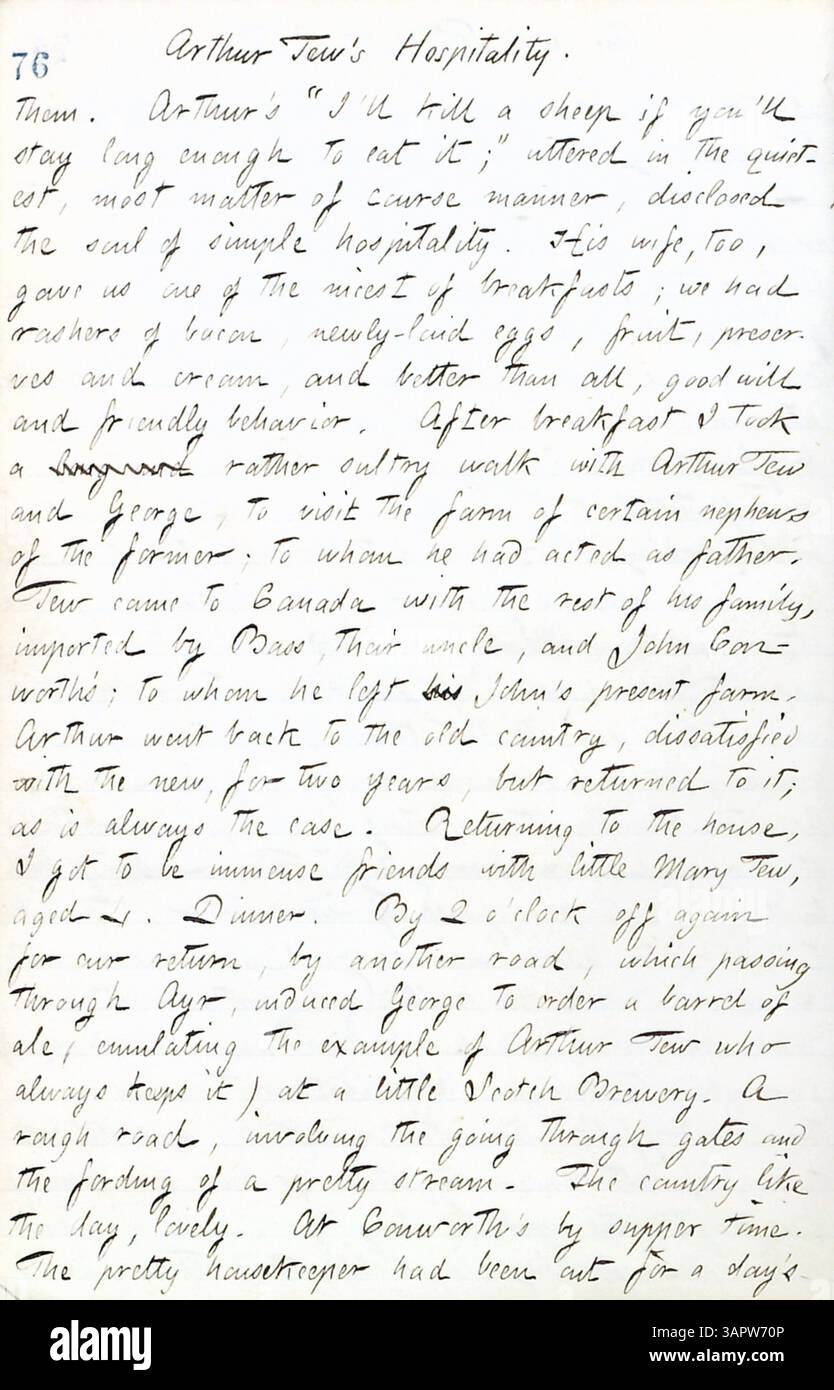 76
Arthur Tew's Hospitality.
them. Arthur's "I'll kill a sheep if you'll
stay long enough to eat it;" uttered in the quiet-
est, most matter of course manner, disclosed
the soul of simple hospitality. His wife, too,
gave us one of the nicest of breakfasts; we had
rashers of bacon, newly-laid eggs, fruit, preser-
ves and cream, and better than all, good will
and friendly behavior. After breakfast I took
a rather sultry walk with Arthur Tew
and George, to visit the farm of certain nephews
of the former; to whom he had acted as father.
Tew came to Canada with the rest of his family,
imported by Bass, their uncle, and John Con-
worth's; to whom he left his John's present farm.
Arthur went back to the old country, dissatisfied
with the new, for two years, but returned to it;
as is always the case. Returning to the house,
I got to be immense friends with little Mary Tew,
aged 4. Dinner. By 2 o'clock off again
for our return, by another road, which passing
through Ayr, induced George to order a barrel of
ale, (emulating the example of Arthur Tew who
always keeps it) at a little Scotch Brewery. A
rough road, involving the going through gates and
the fording of a pretty stream. The country like
the day, lovely. At Conworth's by supper time.
The pretty housekeeper had been out for a day's
alamy
Image ID: 3APW70P
www.alamy.com